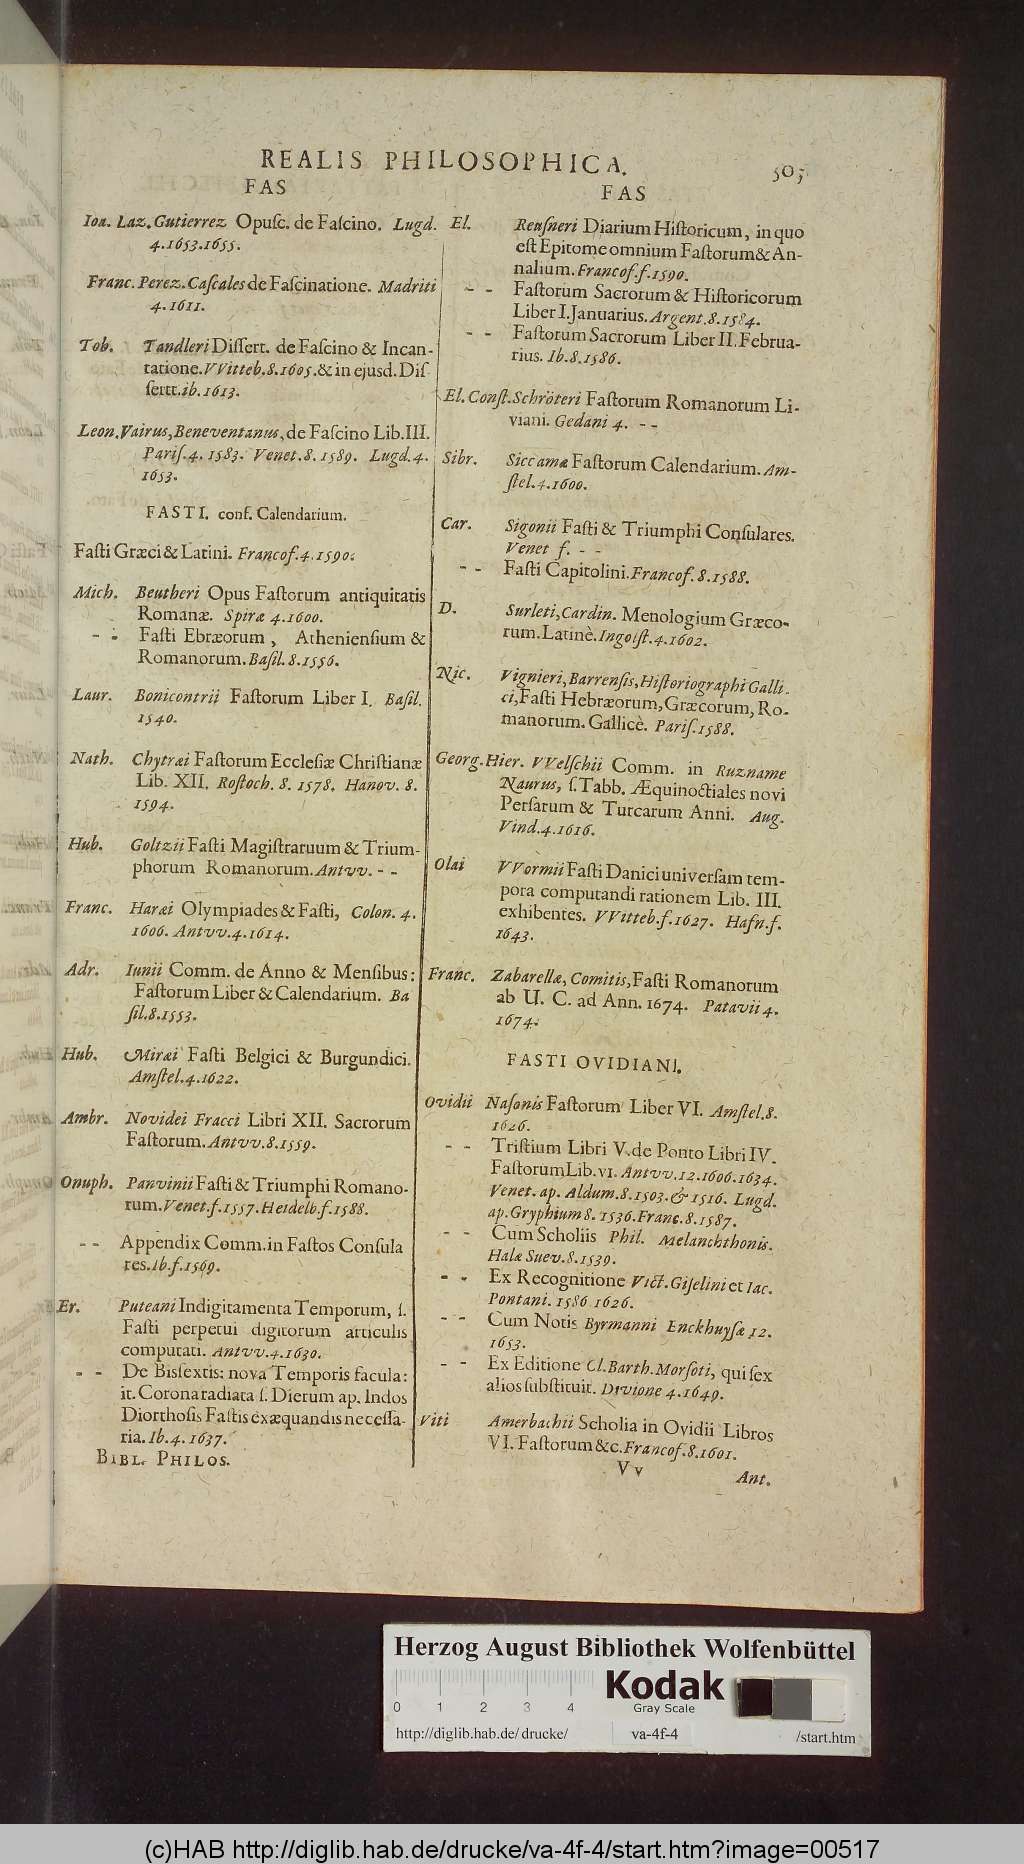 REALIS PHILOSOPHICA.
505
FAS
Ioa. Laz. Gutierrez Opusc. de Fascino. Lugd.
4.1653.1655.
Franc. Perez. Cascales de Fascinatione. Madriti
4.1611.
Tob. Tandleri Dissert. de Fascino & Incan-
tatione. VVitteb.8.1605.& in ejusd. Dis-
sertt.ib.1613.
Leon. Vairus, Beneventanus, de Fascino Lib.III.
Paris.4.1583. Venet.8.1589. Lugd.4.
1653.
FASTI. conf. Calendarium.
Fasti Græci & Latini. Francof.4.1590.
Mich. Beutheri Opus Fastorum antiquitatis
Romanæ. Spiræ 4.1600.
- - Fasti Ebræorum, Atheniensium &
Romanorum. Basil.8.1556.
Laur. Bonicontrii Fastorum Liber I. Basil.
1540.
Nath. Chytræi Fastorum Ecclesiæ Christianæ
Lib. XII. Rostoch. 8. 1578. Hanov. 8.
1594.
Hub. Goltzii Fasti Magistratuum & Trium-
phorum Romanorum. Antvv. - -
Franc. Haræi Olympiades & Fasti, Colon. 4.
1606. Antvv.4.1614.
Adr. Iunii Comm. de Anno & Mensibus:
Fastorum Liber & Calendarium. Ba
sil.8.1553.
Hub. Miræi Fasti Belgici & Burgundici.
Amstel.4.1622.
Ambr. Novidei Fracci Libri XII. Sacrorum
Fastorum. Antvv.8.1559.
Onuph. Panvinii Fasti & Triumphi Romano-
rum. Venet.f.1557. Heidelb.f.1588.
- - Appendix Comm. in Fastos Consula
res. Ib.f.1569.
Er. Puteani Indigitamenta Temporum, s.
Fasti perpetui digitorum articulis
computati. Antvv.4.1630.
- - De Bissextis: nova Temporis facula:
it. Corona radiata s. Dierum ap. Indos
Diorthosis Fastis exæquandis necessa-
ria. Ib.4. 1637.
BIBL. PHILOS.
FAS
El. Reusneri Diarium Historicum, in quo
est Epitome omnium Fastorum & An-
nalium. Francof.f.1590.
- - Fastorum Sacrorum & Historicorum
Liber I. Januarius. Argent.8.1584.
- - Fastorum Sacrorum Liber II. Februa-
rius. Ib.8.1586.
El. Const. Schröteri Fastorum Romanorum Li-
viani. Gedani 4. - -
Sibr. Siccamæ Fastorum Calendarium. Am-
stel.4.1600.
Car. Sigonii Fasti & Triumphi Consulares.
Venet f. - -
- - Fasti Capitolini. Francof.8.1588.
D. Surleti, Cardin. Menologium Græco-
rum. Latinè. Ingolst.4.1602.
Nic. Vignieri, Barrensis, Historiographi Galli-
ci, Fasti Hebræorum, Græcorum, Ro-
manorum. Gallicè. Paris.1588.
Georg. Hier. VVelschii Comm. in Ruzname
Naurus, s. Tabb. Æquinoctiales novi
Persarum & Turcarum Anni. Aug.
Vind.4.1616.
Olai VVormii Fasti Danici universam tem-
pora computandi rationem Lib. III.
exhibentes. VVitteb.f.1627. Hafn.f.
1643.
Franc. Zabarellæ, Comitis, Fasti Romanorum
ab U. C. ad Ann. 1674. Patavii 4.
1674.
FASTI OVIDIANI.
Ovidii Nasonis Fastorum Liber VI. Amstel.8.
1626.
- - Tristium Libri V. de Ponto Libri IV.
Fastorum Lib. VI. Antvv.12.1606.1634.
Venet. ap. Aldum.8.1503.& 1516. Lugd.
ap. Gryphium 8. 1536. Franc.8.1587.
- - Cum Scholiis Phil. Melanchthonis.
Halæ Suev.8.1539.
- - Ex Recognitione Vict. Giselini et Iac.
Pontani. 1586 1626.
- - Cum Notis Byrmanni Enckhuysæ 12.
1653.
- - Ex Editione Cl. Barth. Morsoti, qui sex
alios substituit. Divione 4.1649.
Viti Amerbachii Scholia in Ovidii Libros
VI. Fastorum &c. Francof.8.1601.
V v
Ant.
Herzog August Bibliothek Wolfenbüttel
0 1 2 3 4
Kodak
Gray Scale
http://diglib.hab.de/ drucke/
va-4f-4
/start.htm
(c)HAB http://diglib.hab.de/drucke/va-4f-4/start.htm?image=00517